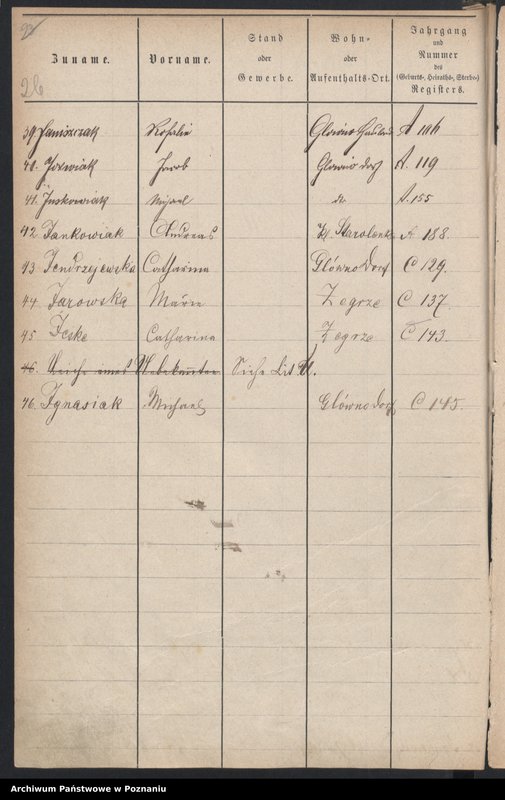 23
26
Zuname. Vorname. Stand oder Gewerbe. Wohn- oder Aufenthalts-Ort. Jahrgang und Nummer des (Geburts-, Heiraths-, Sterbe-) Registers.
39 Janiszczak Rosalie Glowno A 106
40. Jozwiak Jacob Glowno dorf A. 119
41. Juskowiak Michael do A. 155
42 Jankowiak Andreas Kl Starolenka A 188.
43 Jendrzejewska Catharina Glówno Dorf C 129.
44 Jarowska Marie Zegrze C 137
45 Jeske Catharina Zegrze C 143.
46. Leiche eines Unbekannten Siehe Lit U.
46. Ignasiak Michael Glówno Dorf C 145
Archiwum Państwowe w Poznaniu